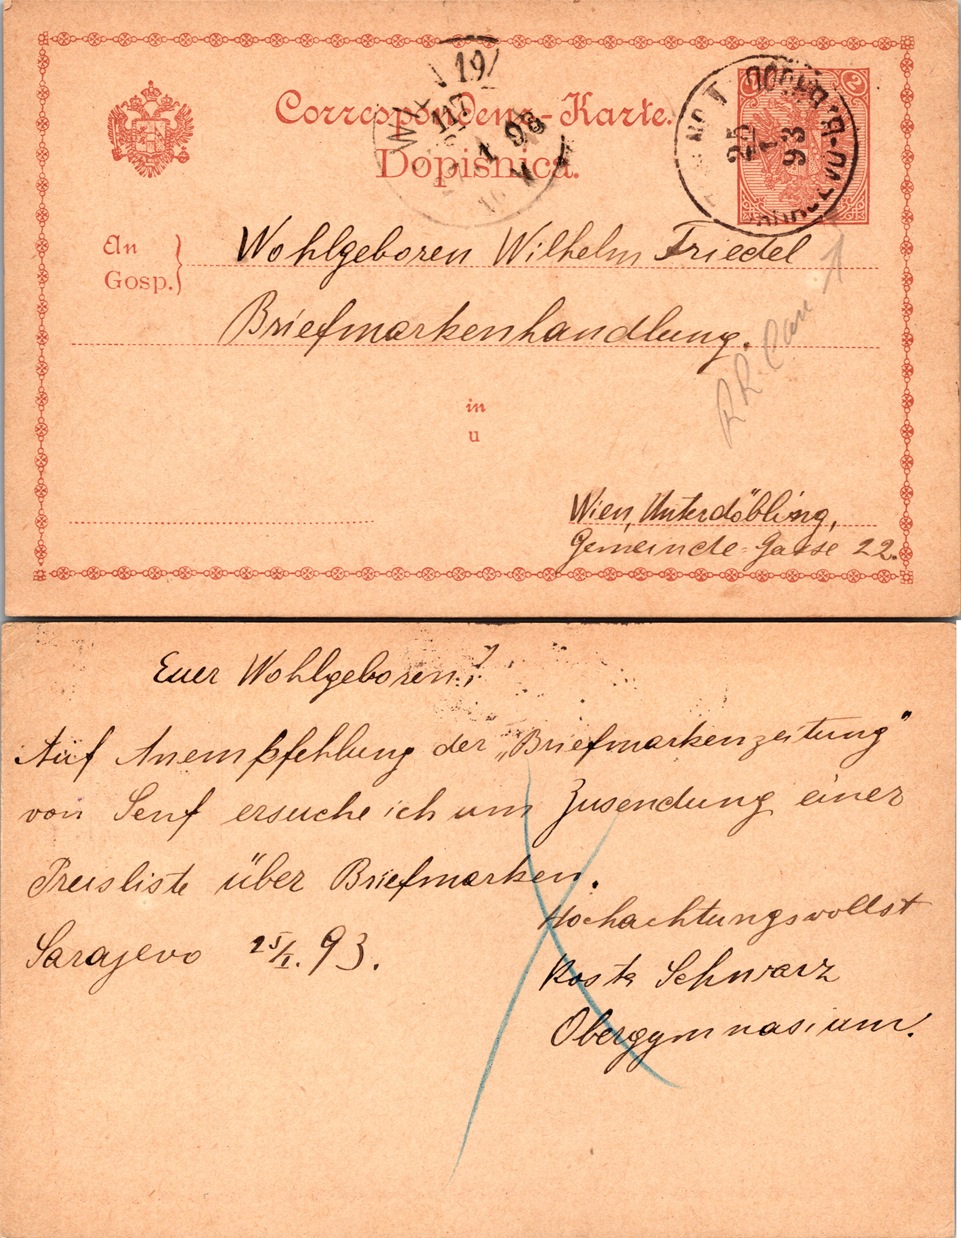 Correspondenz-Karte.
Dopisnica.
WIEN 19/
117
1 93
25
I
93
2
An
Gosp.
Wohlgeboren Wilhelm Friedel
Briefmarkenhandlung.
in
u
Wien, Unterdöbling,
Gemeinde-Gasse 22.
Euer Wohlgeboren!
Auf Anempfehlung der „Briefmarkenzeitung"
von Senf ersuche ich um Zusendung einer
Preisliste über Briefmarken.
Hochachtungsvollst
Sarajevo 25/I. 93.
Kosta Schwarz
Obergymnasium.